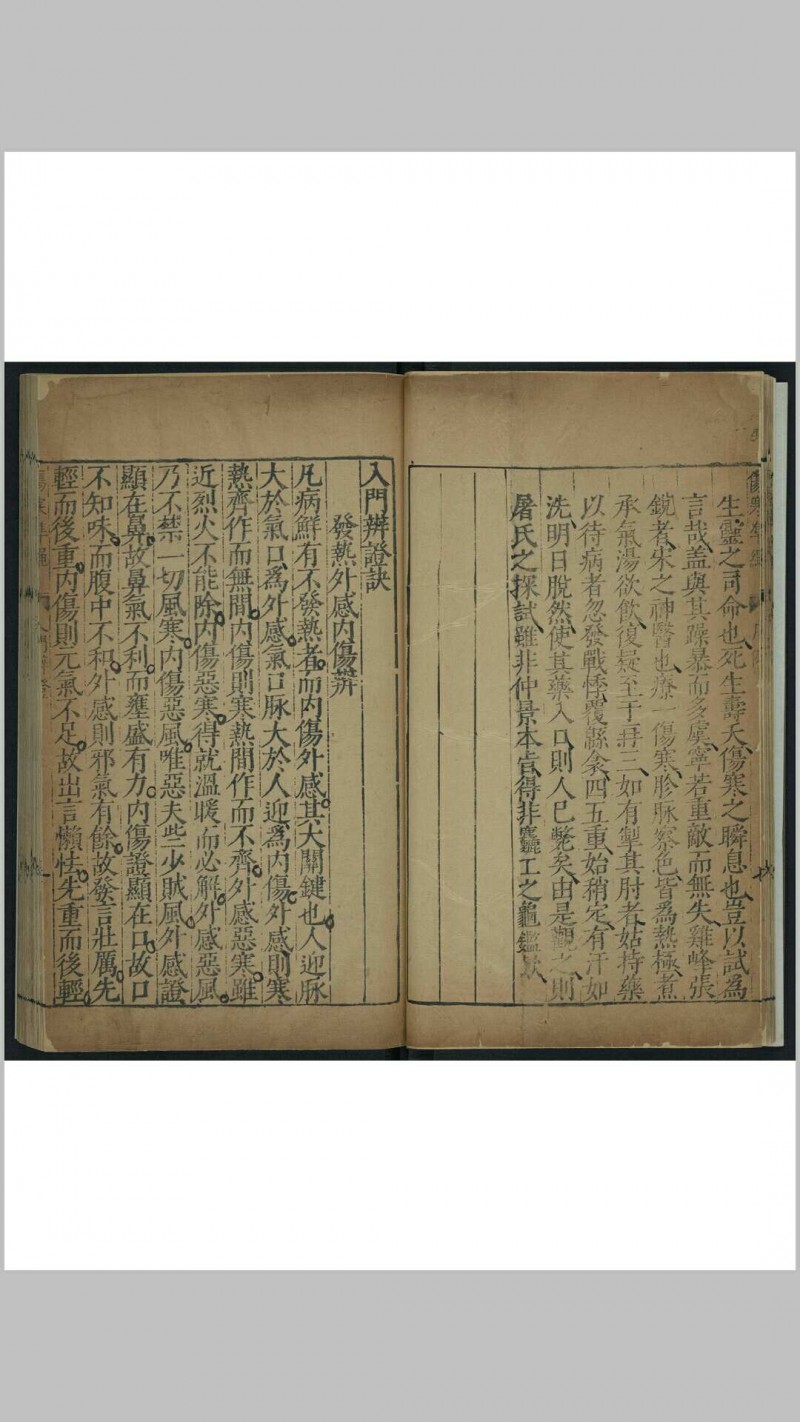 生靈之司命也死生壽夭傷寒之瞬息也豈以試爲
言哉蓋與其躁暴而多虞寧若重敵而無失雞峰張
銳者宋之神醫也療一傷寒胗脉察色皆爲熱極煮
承氣湯欲飲復疑至于再三如有掣其肘者姑持藥
以待病者忽發戰慄覆緜衾四五重始稍定有汗如
洗明日脫然使其藥入口則人已斃矣由是觀之則
屠氏之探試雖非仲景本旨得非麤工之龜鑑歟
入門辨證訣
發熱外感内傷辨
凡病鮮有不發熱者而内傷外感其大關鍵也人迎脉
大於氣口爲外感氣口脉大於人迎爲内傷外感則寒
熱齊作而無間内傷則寒熱間作而不齊外感惡寒雖
近烈火不能除内傷惡寒得就溫暖而必解外感惡風
乃不禁一切風寒内傷惡風唯惡夫些少賊風外感證
顯在鼻故鼻氣不利而壅盛有力内傷證顯在口故口
不知味而腹中不和外感則邪氣有餘故發言壯厲先
輕而後重内傷則元氣不足故出言懶怯先重而後輕